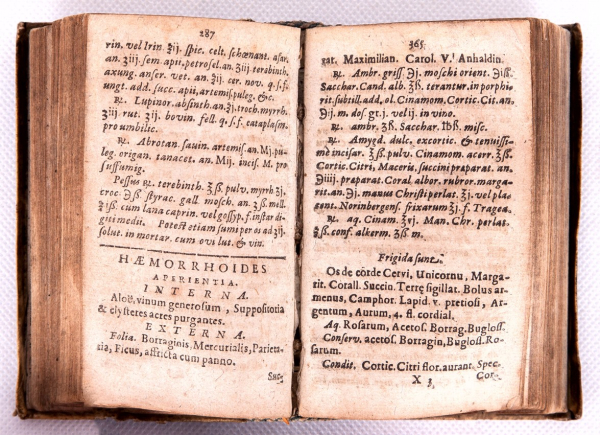 287
rin. vel Irin. ʒij. spic. celt. schœnant. asar.
an. ʒiij. sem. apii. petrosel. an. ʒiij. terebinth.
axung. anser. vet. an. ℥ij. cer. nov. q. s. f.
ungt. add. succ. apii, artemis. puleg. &c.
℞. Lupinor. absinth. an. ʒj. troch. myrrh.
ʒiij. rut. ʒij. bovin. fell. q. s. f. cataplasm.
pro umbilic.
℞. Abrotan. savin. artemis. an. Mj. pu-
leg. origan. tanacet. an. Mij. incis. M. pro
suffumig.
Pessus ℞. terebinth. ℥ß. pulv. myrrh ʒj.
croc. ℈ß. styrac. gall. mosch. an. ʒß. mell.
℥ß. cum lana caprin. vel gossyp. f. instar di-
giti medii. Potest etiam sumi per os ad ʒj.
solut. in mortar. cum ovi lut. & vin.
HÆMORRHOIDES
APERIENTIA.
INTERNA.
Aloë, vinum generosum, Suppositoria
& clysteres acres purgantes.
EXTERNA.
Folia. Borraginis, Mercurialis, Parieta-
ria, Ficus, affricta cum panno.
Suc-
365
rat. Maximilian. Carol. V.ⁱ Anhaldin.
℞. Ambr. griss. ℈j. moschi orient. ℈iß.
Sacchar. Cand. alb. ℥ß. terantur. in porphi-
rit. subtill. add. ol. Cinamom. Cortic. Cit. an.
℈j. m. dos. gr. j. vel ij. in vino.
℞. ambr. ʒß. Sacchar. ℔ß. misc.
℞. Amygd. dulc. excortic. & tenuissi-
me incisar. ℥ß. pulv. Cinamom. acerr. ℥ß.
Cortic. Citri, Maceris, succini præparat. an.
℈iiij. præparat. Coral. albor. rubror. marga-
rit. an. ℈j. manus Christi perlat. ℥j. vel pla-
cent. Norinbergens. frixarum ℥j. f. Tragea.
℞. aq. Cinam. ℥vj. Man. Chr. perlat.
℥ß. conf. alkerm. ℥ß. m.
Frigida sunt.
Os de corde Cervi, Unicornu, Marga-
rit. Corall. Succin. Terrę sigillat. Bolus ar-
menus, Camphor. Lapid. v. pretiosi, Ar-
gentum, Aurum, 4. fl. cordial.
Aq. Rosarum, Acetos. Borrag. Bugloss.
Conserv. acetos. Borragin, Bugloss. Ro-
sarum.
Condit. Cortic. Citri flor. aurant. Spec.
X 3 Cor-